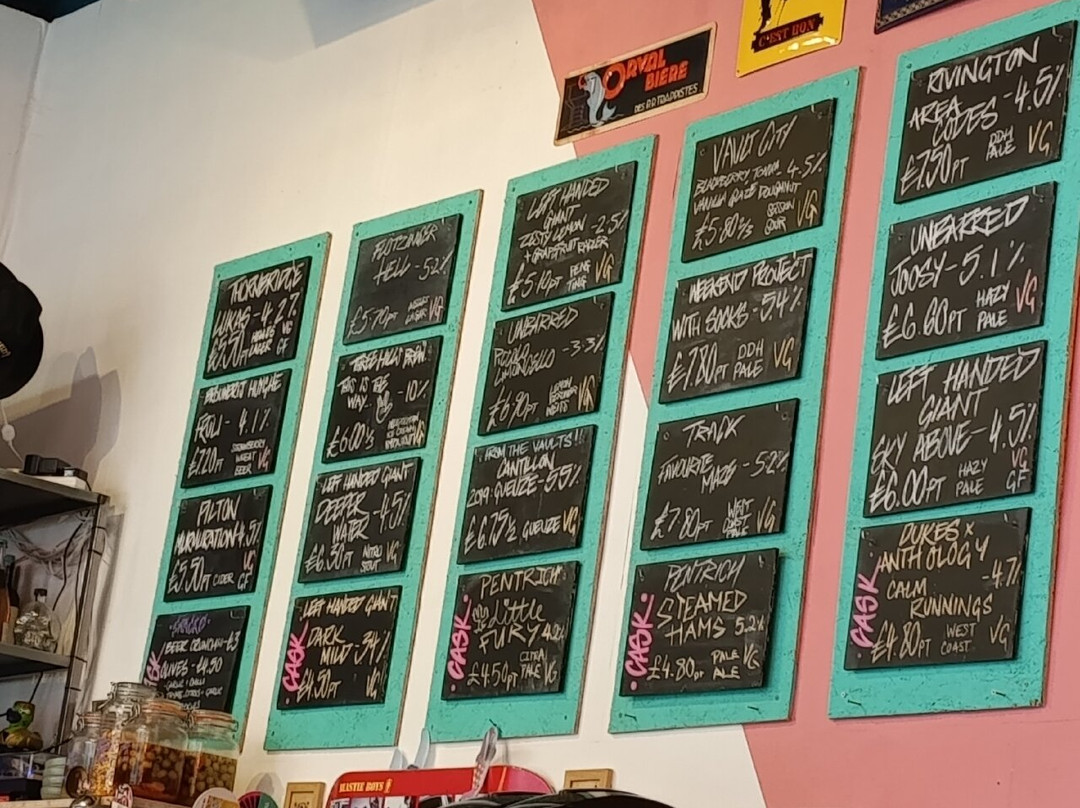 C'EST BON
ORVAL
BIERE
DES P.P. TRAPPISTES
THORNBRIDGE
LUKAS - 4.2%
£5.50PT
LAGER
VG
GF
FRULI - 4.1%
£7.20PT
STRAWBERRY
WHEAT
BEER
VG
PILTON
MURMURATION 4.5%
£5.50PT CIDER
VG
GF
SNACKS
BEER CRUNCH - £3
OLIVES - £4.50
HELL - 5.2%
£5.70PT
LAGER VG
THREE HILLS BREW
THIS IS THE
WAY. - 10%
£6.00⅓
VG
LEFT HANDED GIANT
DEEPER
WATER - 4.5%
£6.30PT
NITRO
STOUT
VG
CASK
LEFT HANDED GIANT
DARK
MILD - 3.4%
£4.50PT VG
LEFT HANDED
GIANT
ZESTY LEMON - 2.5%
+ GRAPEFRUIT RADLER
£5.10PT
VG
UNBARRED
LIMONCELLO - 3.3%
VG
FROM THE VAULTS!!
CANTILLON
2019 GUEUZE - 5.5%
£6.75½ GUEUZE VG
·CASK·
PENTRICH
Little
FURY
£4.50PT
CITRA
PALE
VG
VAULT CITY
VANILLA GLAZE DOUGHNUT
4.5%
£5.80⅔
SESSION
SOUR
VG
WEEKEND PROJECT
WITH SOCKS - 5.4%
£7.80PT
DDH
PALE
VG
TRACK
FAVOURITE
MUGS - 5.2%
£7.80PT
WEST
COAST
PALE
VG
CASK·
PENTRICH
STEAMED
HAMS 5.2%
£4.80PT
PALE
ALE
VG
RIVINGTON
AREA - 4.5%
CODES
£7.50PT
DDH
PALE
VG
UNBARRED
JOOSY - 5.1%
£6.60PT
HAZY
PALE
VG
LEFT HANDED
GIANT
SKY ABOVE - 4.5%
£6.00PT
HAZY
PALE
VG
GF
CASK
DUKES X
ANTHOLOGY
CALM - 4.7%
RUNNINGS
£4.80PT
WEST
COAST
VG